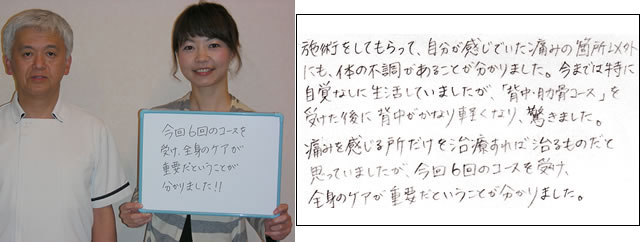 今回6回のコースを
受け、全身のケアが
重要だということが
分かりました!!
施術をしてもらって、自分が感じていた痛みの箇所以外
にも、体の不調があることが分かりました。今までは特に
自覚なしに生活していましたが、「背中・肋骨コース」を
受けた後に背中がかなり軽くなり、驚きました。
痛みを感じる所だけを治療すれば治るものだと
思っていましたが、今回6回のコースを受け、
全身のケアが重要だということが分かりました。